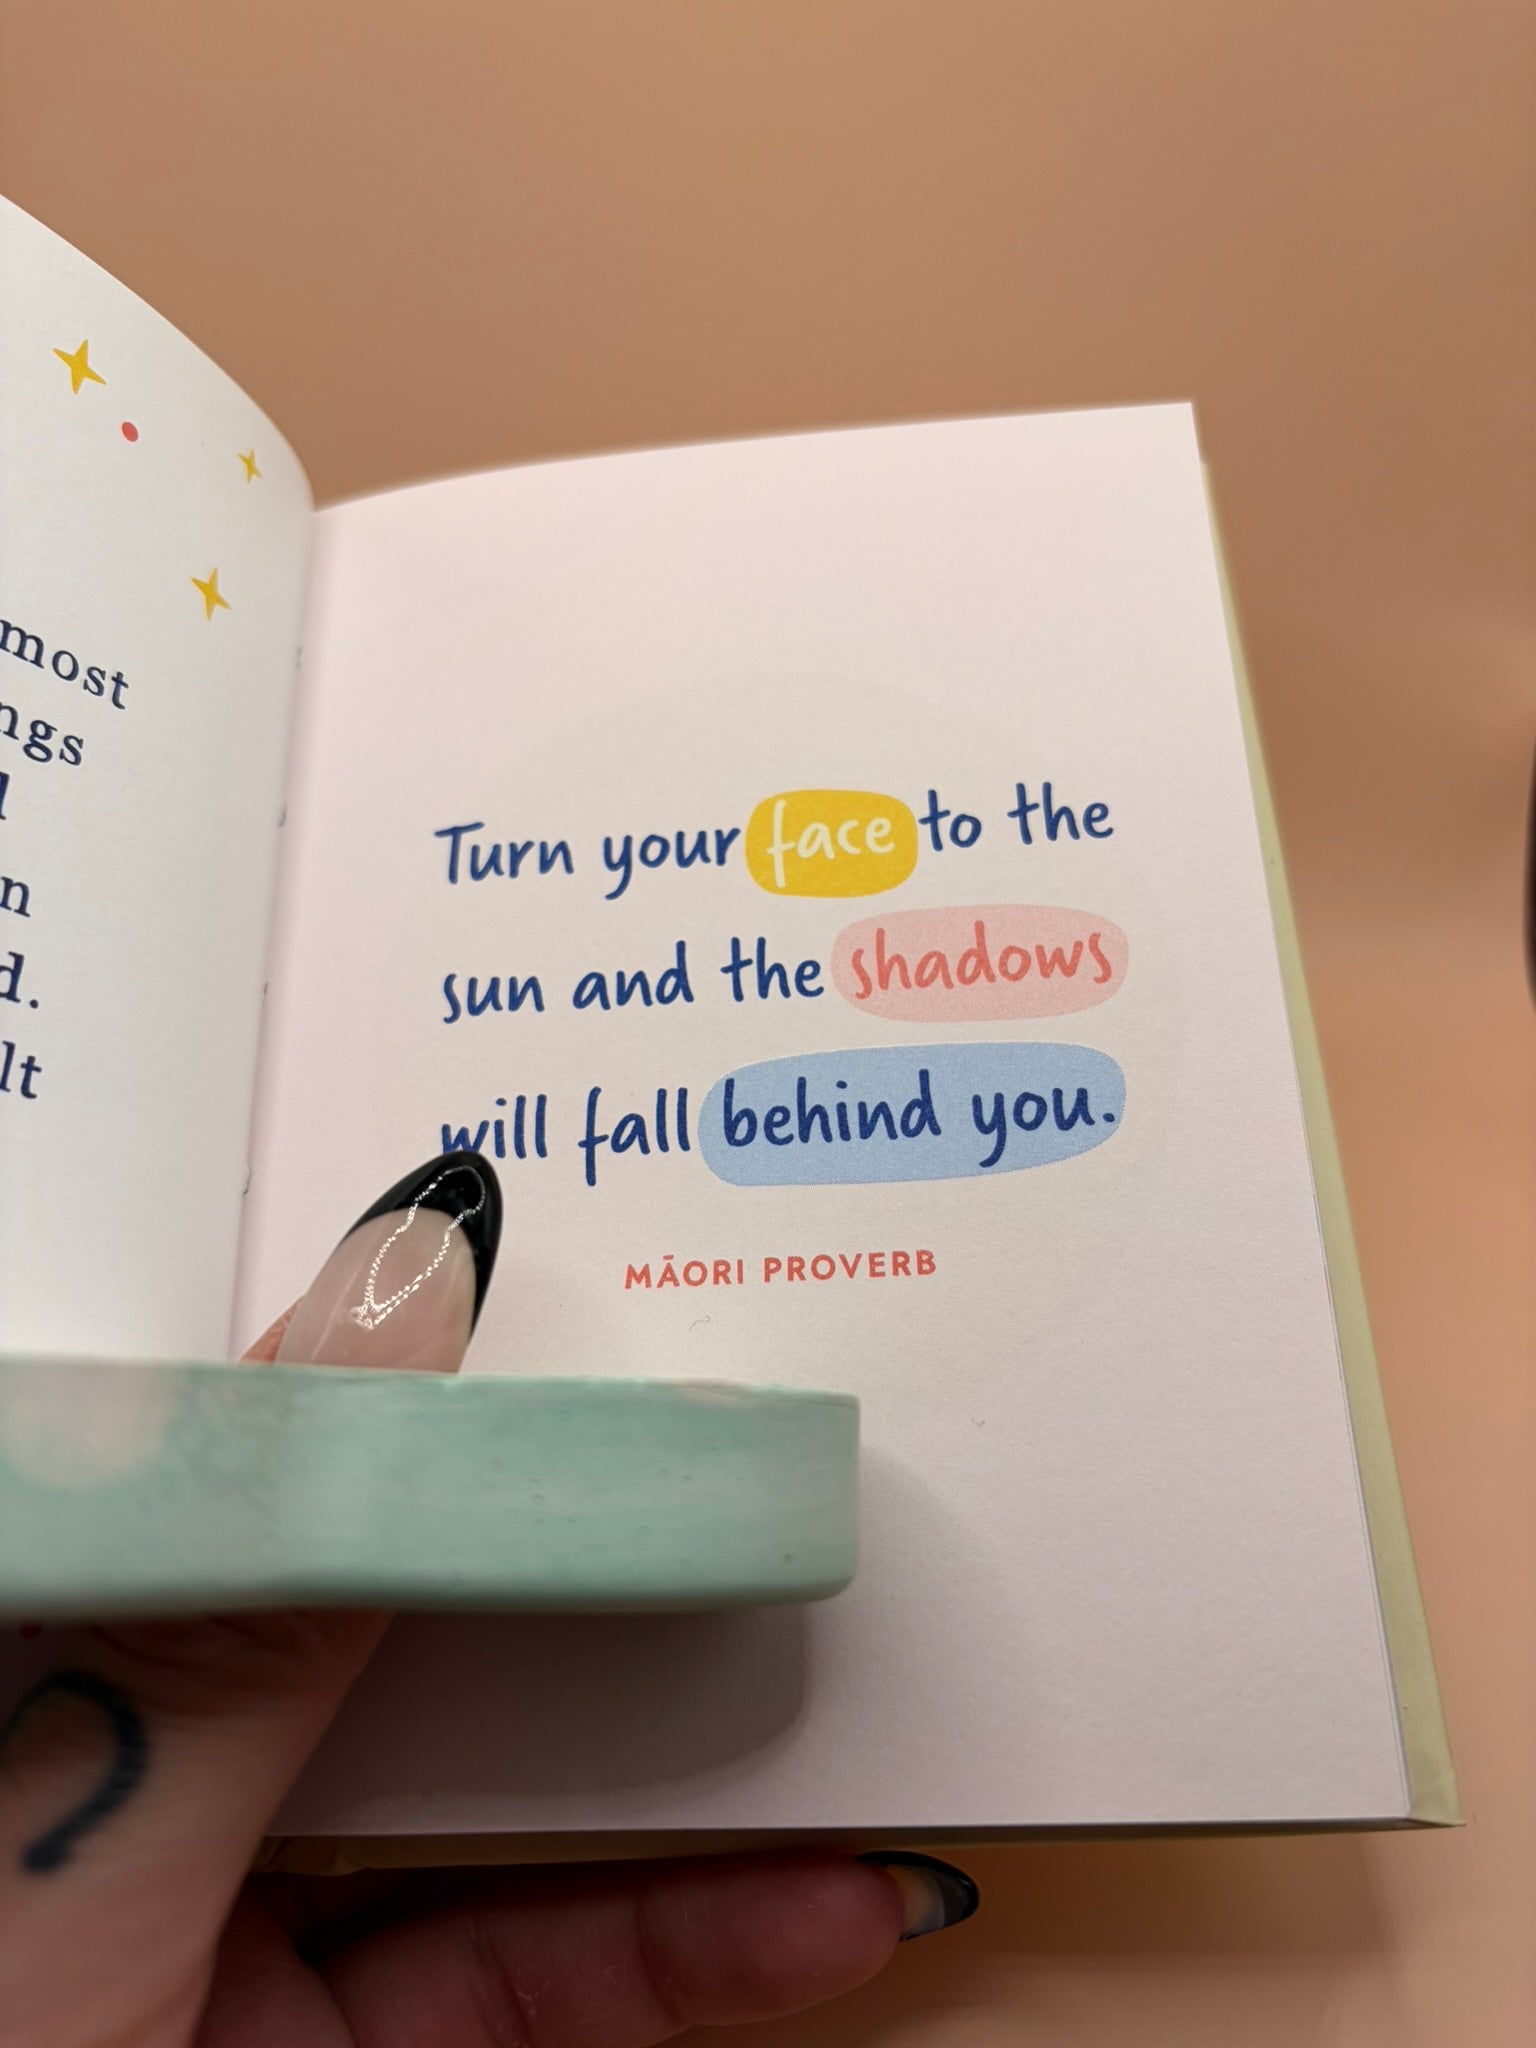 most
ngs
n
d.
lt
Turn your face to the
sun and the shadows
will fall behind you.
MĀORI PROVERB